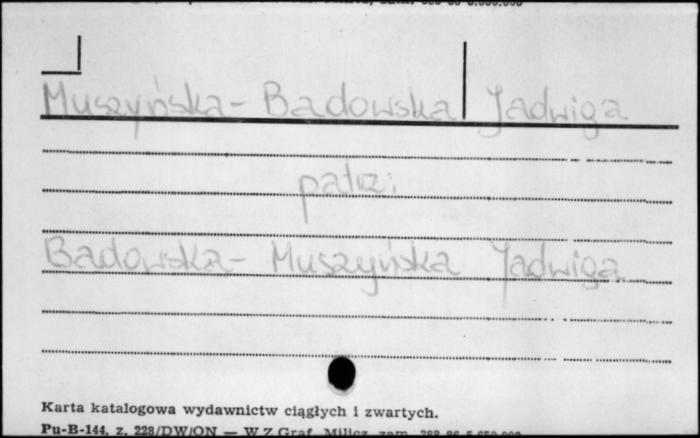 Muszyńska - Badowska Jadwiga
patrz:
Badowska - Muszyńska Jadwiga
Karta katalogowa wydawnictw ciągłych i zwartych.
Pu-B-144, z. 228/DW/ON — W Z Graf. Milicz, zam.